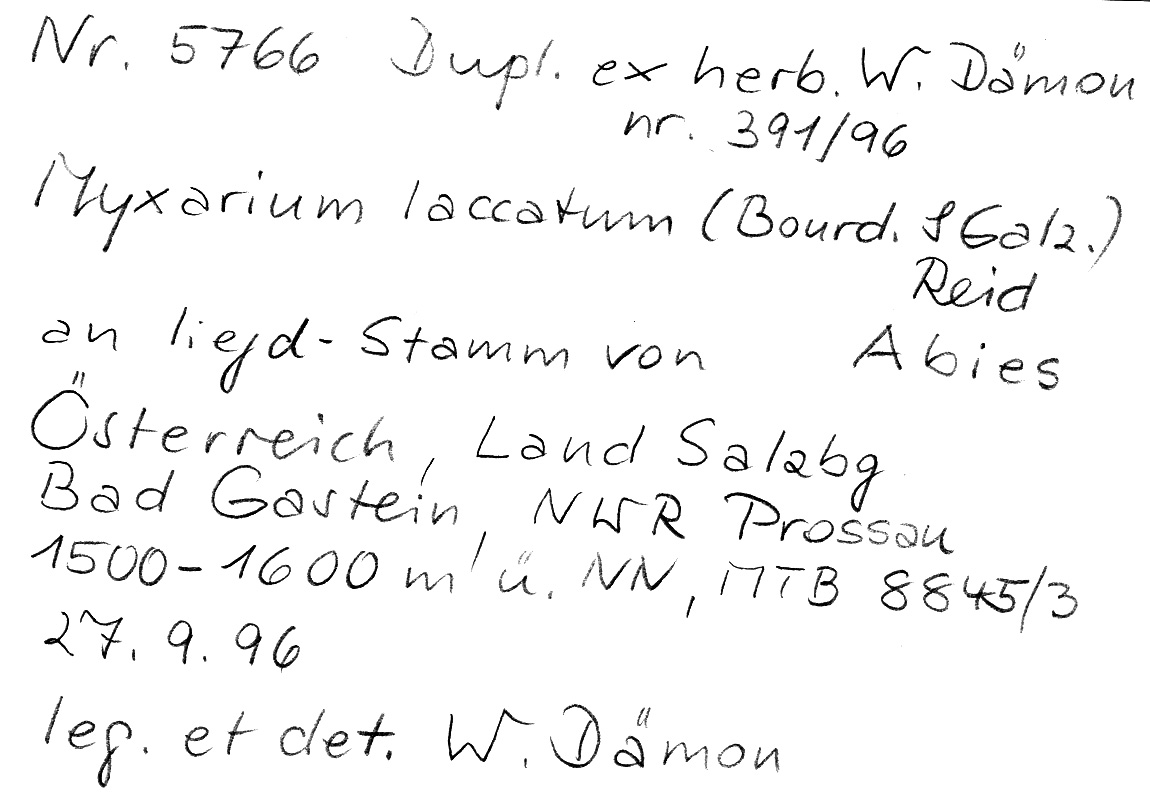 Nr. 5766 Dupl. ex herb. W. Dämon
nr. 391/96
Myxarium laccatum (Bourd. & Galz.)
Reid
an liegd-Stamm von Abies
Österreich, Land Salzbg
Bad Gastein, NWR Prossau
1500-1600 m ü. NN, MTB 8845/3
27. 9. 96
leg. et det. W. Dämon